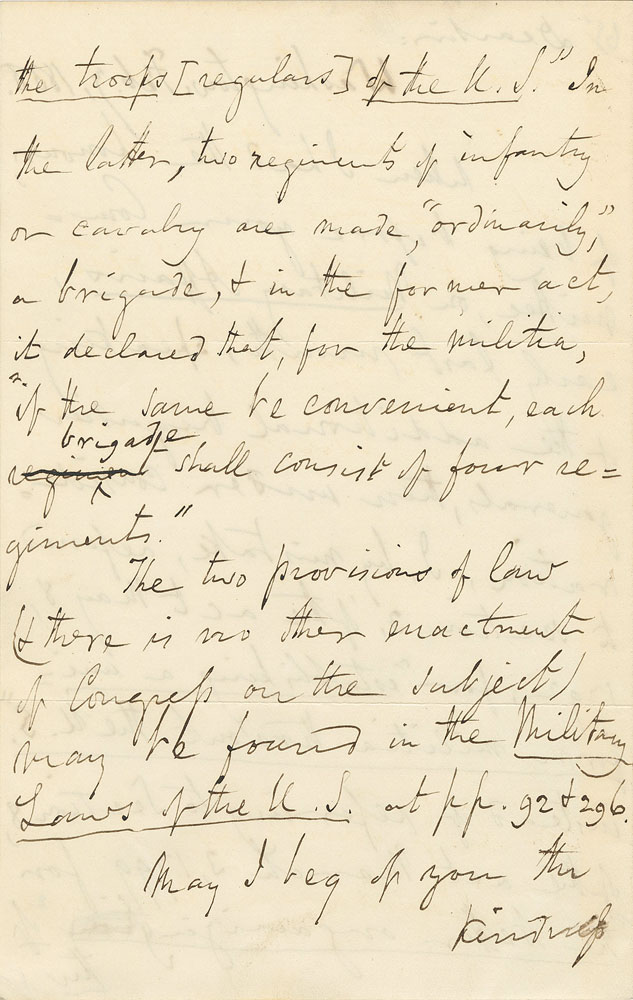 the troops [regulars] of the U. S." In
the latter, two regiments of infantry
or cavalry are made, "ordinarily,"
a brigade, & in the former act,
it declared that, for the militia,
"if the same be convenient, each
brigade
regiment shall consist of four re=
giments."
The two provisions of law
(& there is no other enactment
of Congress on the subject)
may be found in the Military
Laws of the U. S. at pp. 92 & 296.
May I beg of you the
kindness